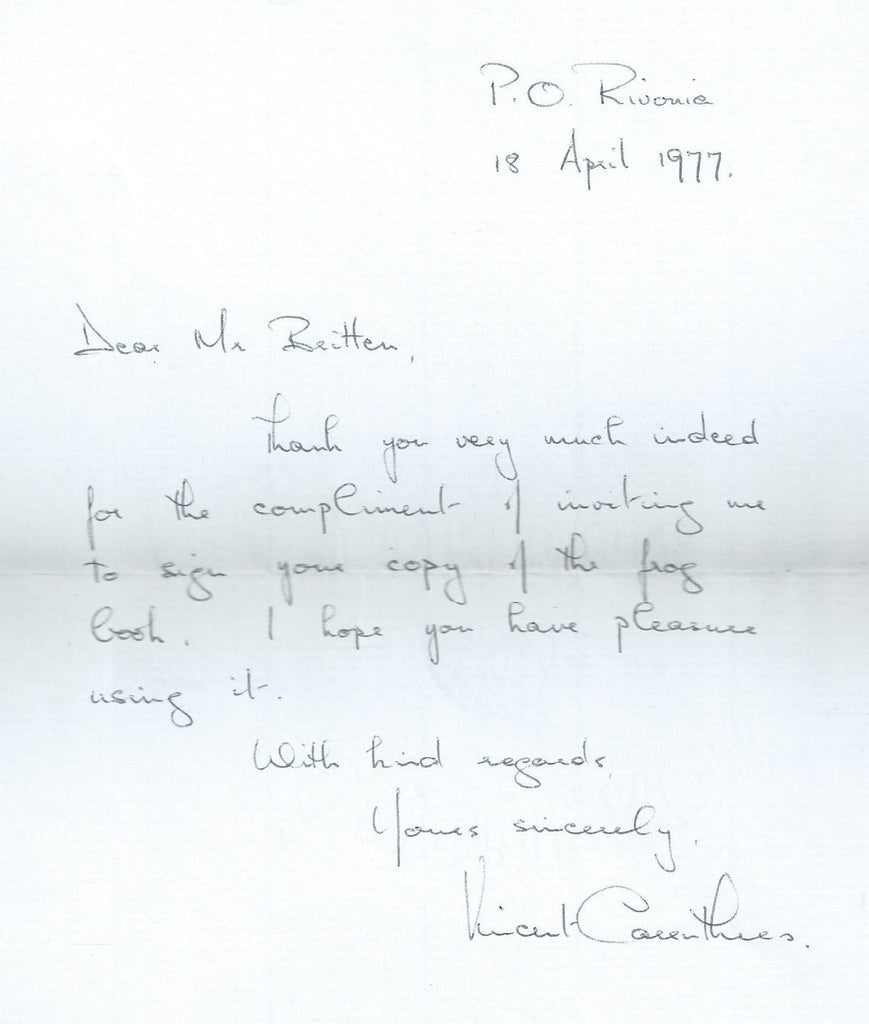 P.O. Rivonia
18 April 1977.
Dear Mr Britten,
Thank you very much indeed
for the compliment of inviting me
to sign your copy of the frog
book. I hope you have pleasure
using it.
With kind regards,
Yours sincerely,
Vincent Carruthers.